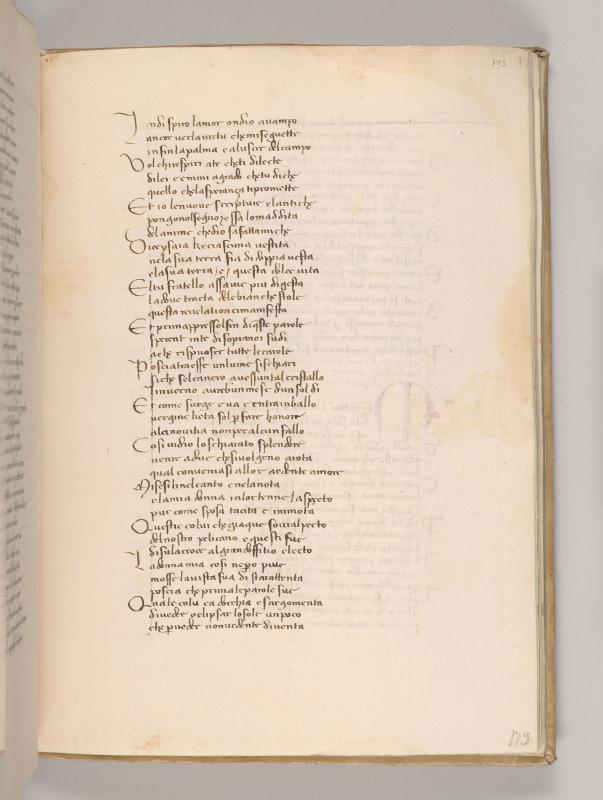 103
Indi spiro lamor ondio auampo
ancor uerlauirtu che mi seguette
infin lapalma e aluscir del campo
Vol chirespiri ate cheti dilecte
dilei e emmi agrado che tu diche
quello che la speranza ti promette
Et io lenuoue scripture e lantiche
pongonol segno et essa lo maddita
delanime che dio sa fatt amiche
Dice ysaia che ciascuna uestita
nela sua terra fia di doppia uesta
e la sua terra / e / questa dolce uita
El tu fratello assai uie piu digesta
la doue tracta dele bianche stole
questa reuelation ci manifesta
Et prima presso l fin di queste parole
sperent inte di sopra noi s udi
ache rispuoser tutte le carole
Poscia tra esse un lume si schiari
si che sel cancro auess un tal cristallo
Inuerno aurebbe un mese dun sol di
Et come surge e ua e entra in ballo
uergine lieta sol per fare honore
ala nouitia non per alcun fallo
Cosi uidio lo schiarato splendore
uenir a due che si uolgeno a rota
qual conueniasi al lor ardente amore
Misesi li nel canto e ne la nota
e la mia donna in lor tenne laspecto
pur come sposa tacita e immota
Questi e colui che giaque soural pecto
del nostro pelicano e questi fue
di su la croce al grand offitio electo
La donna mia cosi ne pero piue
mosse la uista sua di star attenta
poscia che prima le parole sue
Qual e colui ca docchia e sargomenta
di uedere eclipsar lo sole un poco
che per uedere non uedente diuenta
173